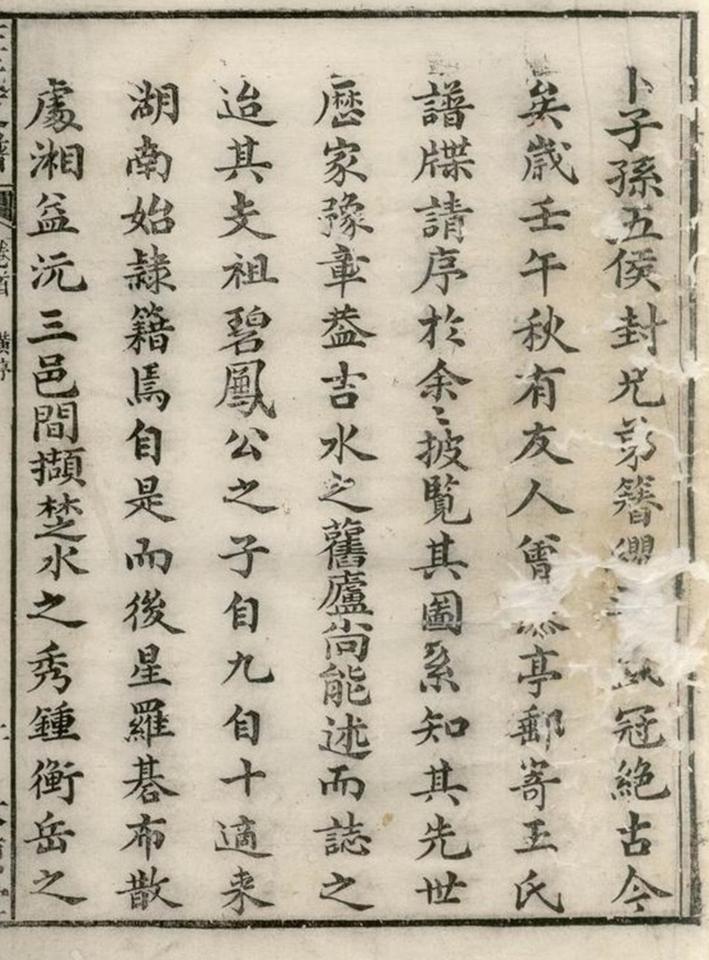 卜子孫五侯封兄弟簪纓之盛冠絕古今
矣歲壬午秋有友人曾亭郵寄王氏
譜牒請序於余〻披覧其圖系知其先世
歴家豫章葢吉水之舊廬尚能述而誌之
迨其攴祖碧鳳公之子自九自十適来
湖南始隸籍焉自是而後星羅碁布散
處湘益沅三邑間擷楚水之秀鍾衡岳之